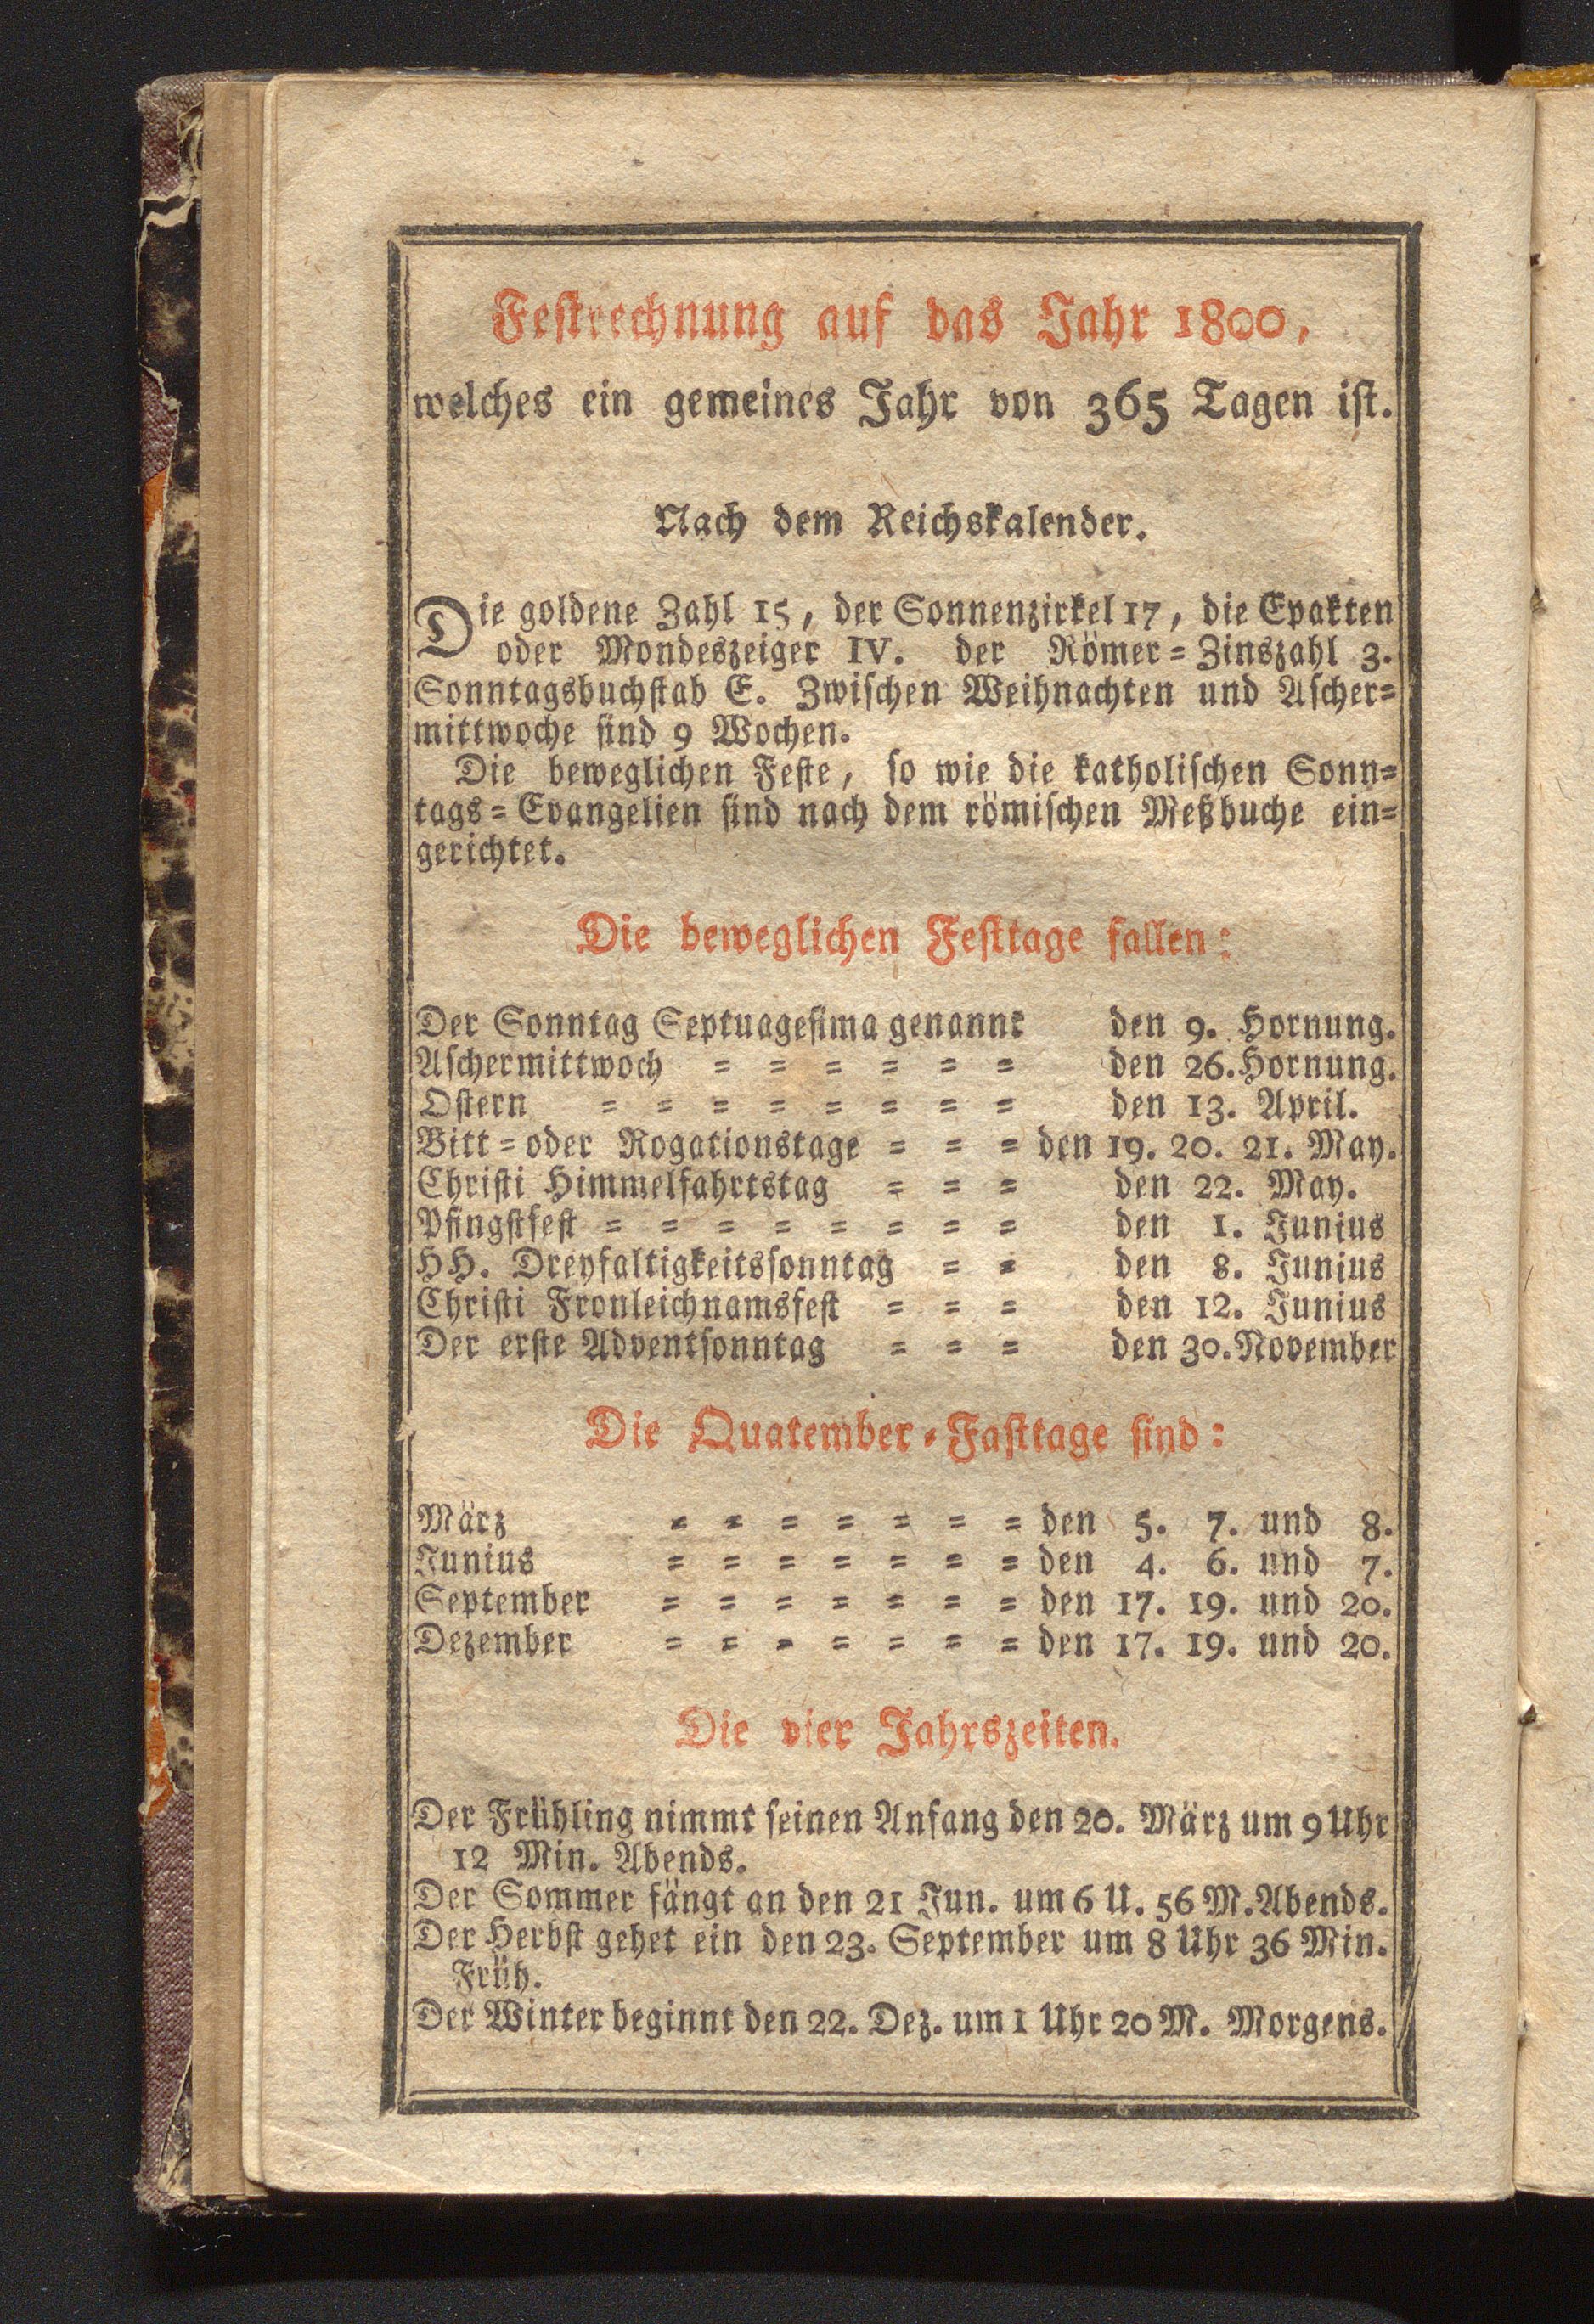 Festrechnung auf das Jahr 1800,
welches ein gemeines Jahr von 365 Tagen ist.
Nach dem Reichskalender.
Die goldene Zahl 15, der Sonnenzirkel 17, die Epakten
oder Mondeszeiger IV. der Römer=Zinszahl 3.
Sonntagsbuchstab E. Zwischen Weihnachten und Ascher=
mittwoche sind 9 Wochen.
Die beweglichen Feste, so wie die katholischen Sonn=
tags=Evangelien sind nach dem römischen Meßbuche ein=
gerichtet.
Die beweglichen Festtage fallen:
Der Sonntag Septuagesima genannt den 9. Hornung.
Aschermittwoch = = = = = = den 26. Hornung.
Ostern = = = = = = = = den 13. April.
Bitt=oder Rogationstage = = = den 19. 20. 21. May.
Christi Himmelfahrtstag = = = den 22. May.
Pfingstfest = = = = = = = = den 1. Junius
HH. Dreyfaltigkeitssonntag = = den 8. Junius
Christi Fronleichnamsfest = = = den 12. Junius
Der erste Adventsonntag = = = den 30. November
Die Quatember=Fasttage sind:
März = = = = = = = den 5. 7. und 8.
Junius = = = = = = = den 4. 6. und 7.
September = = = = = = = den 17. 19. und 20.
Dezember = = = = = = = den 17. 19. und 20.
Die vier Jahrszeiten.
Der Frühling nimmt seinen Anfang den 20. März um 9 Uhr
12 Min. Abends.
Der Sommer fängt an den 21 Jun. um 6 U. 56 M. Abends.
Der Herbst gehet ein den 23. September um 8 Uhr 36 Min.
Früh.
Der Winter beginnt den 22. Dez. um 1 Uhr 20 M. Morgens.